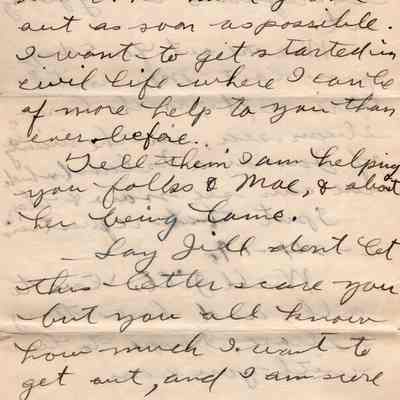 out as soon as possible.
I want to get started in
civil life where I can be
of more help to you than
ever before.
Tell them I am helping
you folks & Mae, & about
her being lame.
Say Jill don't let
this letter scare you
but you all know
how much I want to
get out, and I am sure